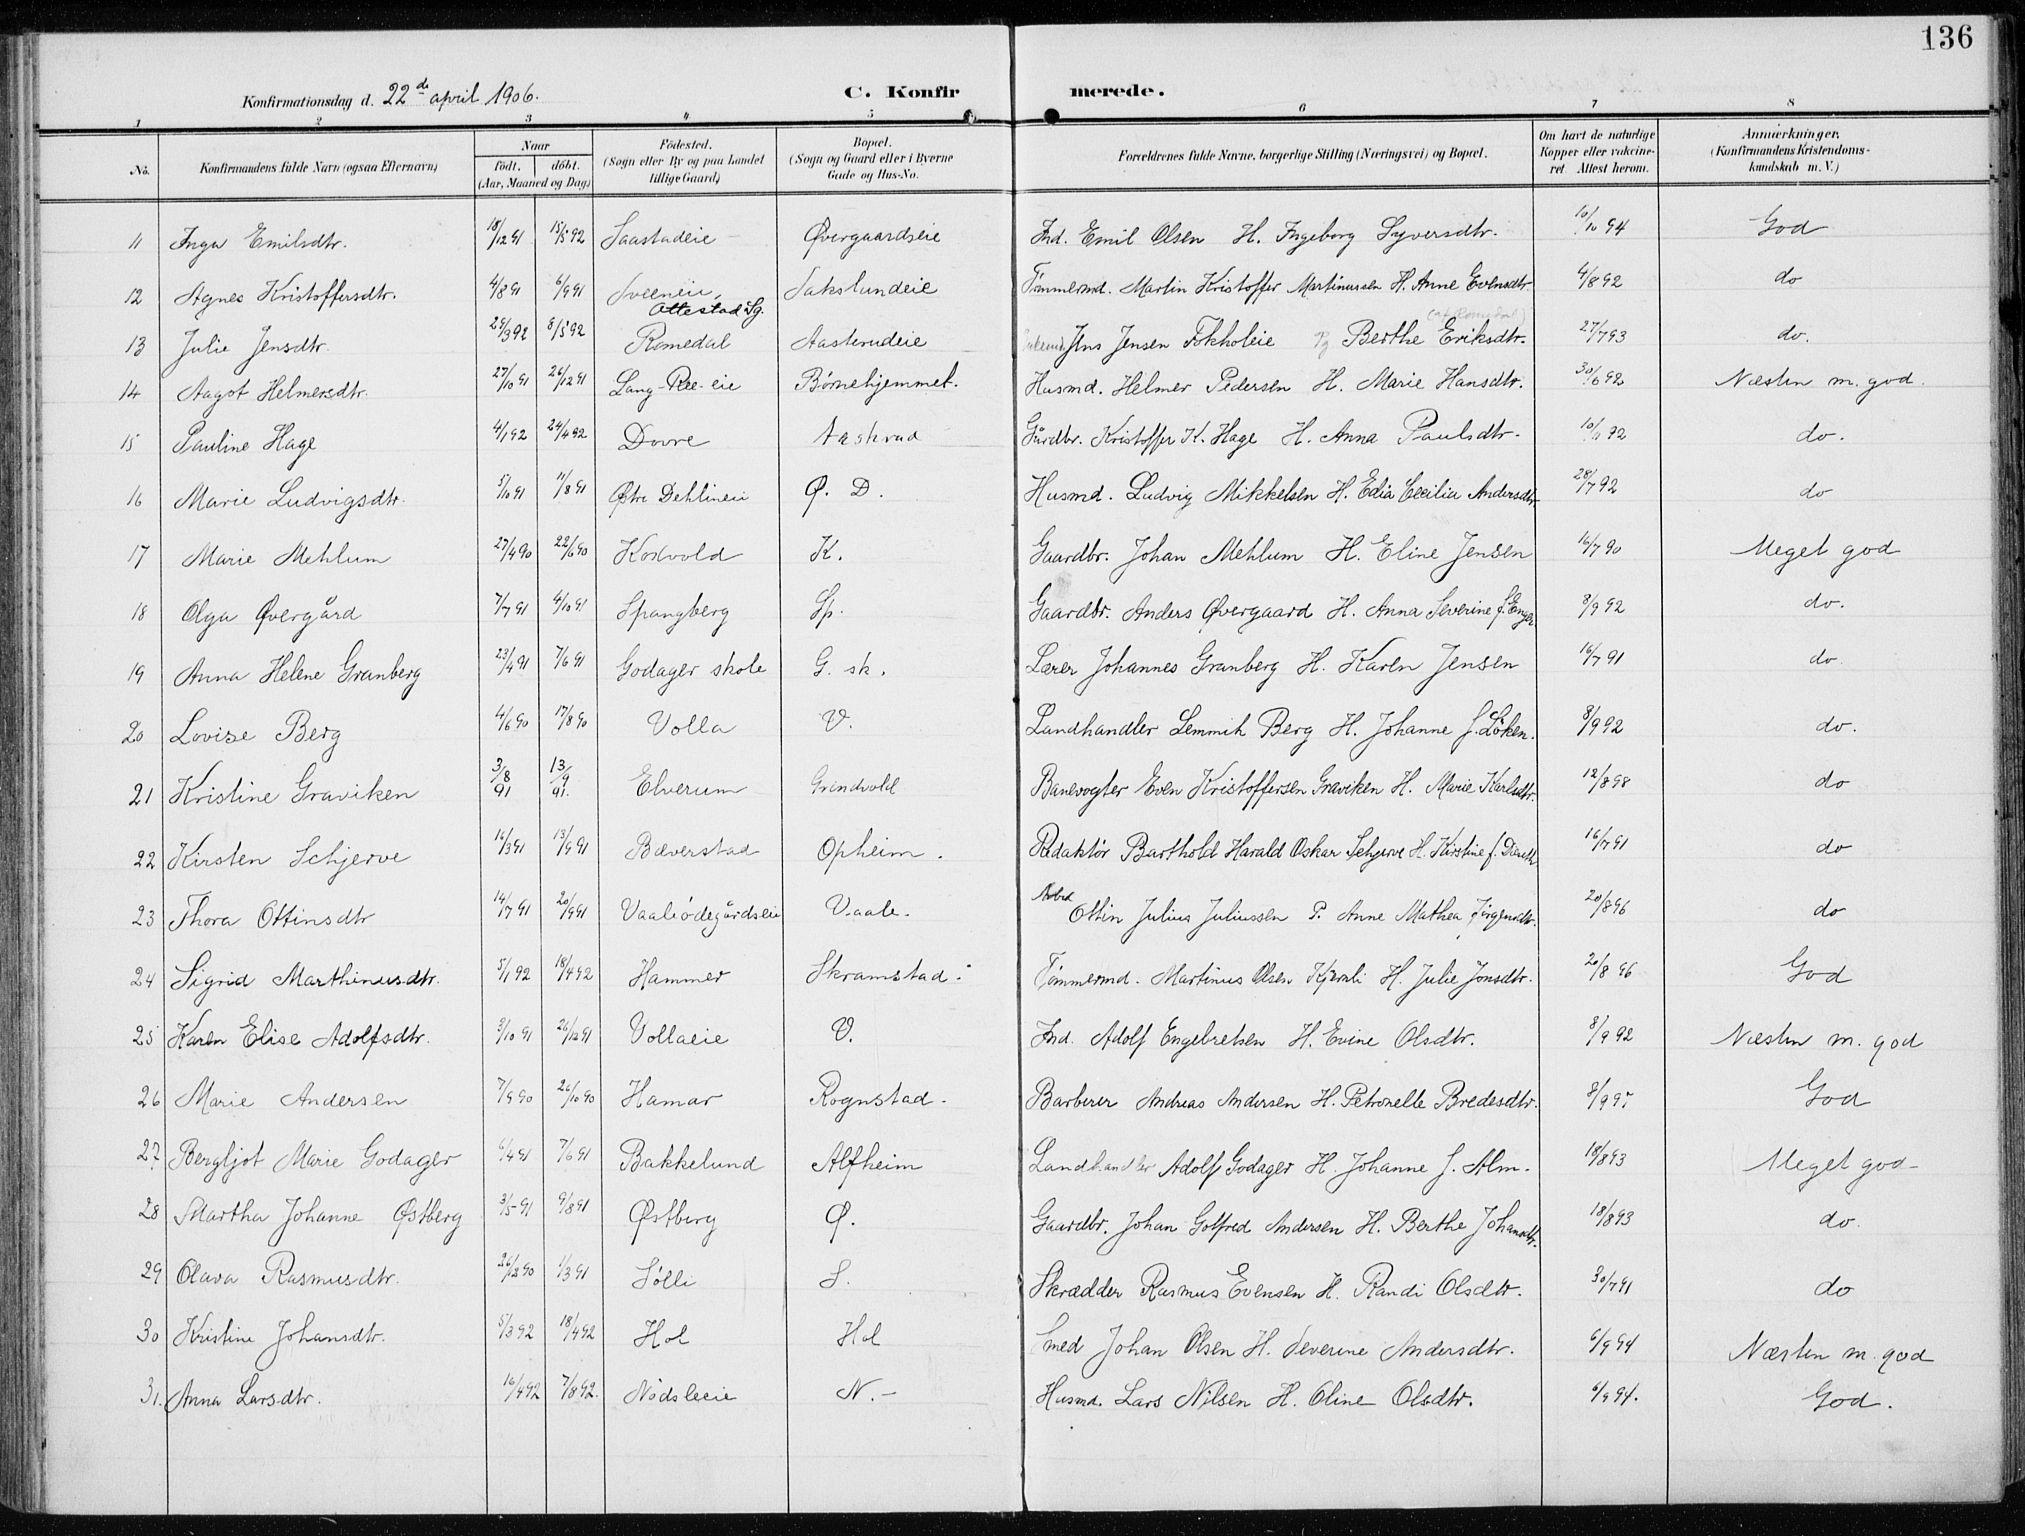 136
Konfirmationsdag d. 22de april 1906. C. Konfirmerede.
1 2 3 4 5 6 7 8
No. Konfirmandens fulde Navn (ogsaa Efternavn) Naar födt. döbt. (Aar, Maaned og Dag.) Födested. (Sogn eller By og paa Landet tillige Gaard) Bopæl. (Sogn og Gaard eller i Byerne Gade og Hus-No. Forældrenes fulde Navne, borgerlige Stilling (Næringsvei) og Bopæl. Om havt de naturlige Kopper eller vakcineret. Attest herom. Anmærkninger, (Konfirmandens Kristendomskundskab m. V.)
11 Inga Emilsdtr. 18/12 91 15/5 92 Saastadeie Øvergaardseie Ind. Emil Olsen H. Ingeborg Syversdtr. 10/10 94 God
12 Agnes Kristoffersdtr. 4/8 91 6/9 91 Sveeneie, Ottestad Sg. Sakslundeie Tømmermd. Martin Kristoffer Martinussen H. Anne Evensdtr. 4/8 92 do
13 Julie Jensdtr. 29/3 92 8/5 92 Romedal Aasterudeie Jens Jensen Fokholeie Pg Berthe Eriksdtr. (af Romedal) 27/7 93 do.
14 Aagot Helmersdtr. 27/10 91 26/12 91 Lang-Ree-eie Børnehjemmet. Husmd. Helmer Pedersen H. Marie Hansdtr. 30/6 92 Næsten m. god.
15 Pauline Hage 4/1 92 24/4 92 Dovre Aaskrud Gårdbr. Kristoffer K. Hage H. Anna Paulsdtr. 10/9 92 do.
16 Marie Ludvigsdtr. 5/10 91 11/8 91 Østre Dehlineie Ø. D. Husmd. Ludvig Mikkelsen H. Edia Cecilia Andersdtr. 28/7 92 do
17 Marie Mehlum 27/4 90 22/6 90 Koxvold K. Gaardbr. Johan Mehlum H. Eline Jensen 16/7 90 Meget god
18 Olga Øvergård 7/7 91 4/10 91 Spangberg Sp. Gaardbr. Anders Øvergaard H. Anna Severine f. Enger 8/9 92 do.
19 Anna Helene Granberg 23/4 91 7/6 91 Godager skole G. sk. Lærer Johannes Granberg H. Karen Jensen 16/7 91 do
20 Lovise Berg 4/6 90 17/8 90 Volla V. Landhandler Lemmik Berg H. Johanne f. Løken. 8/9 92 do.
21 Kristine Graviken 3/8 91 13/9 91. Elverum Grindvold Banevogter Even Kristoffersen Graviken H. Marie Karlsdtr. 12/8 98 do
22 Kirsten Schjerve 16/3 91 13/9 91 Bæverstad Opheim. Redaktør Barthold Harald Oskar Schjerve H. Kirstine f. 16/7 91 do
23 Thora Ottinsdtr 14/7 91 20/9 91 Vaaleødegårdseie Vaale. Arbd Ottin Julius Juliussen P. Anne Mathea Jørgensdtr. 20/8 96 do
24 Sigrid Marthinusdtr. 5/1 92 18/4 92 Hammer Skramstad. Tømmermd. Martinus Olsen Kjernli H. Julie Jonsdtr. 20/8 96 God
25 Karen Elise Adolfsdtr. 3/10 91 26/12 91 Vollaeie V. Ind. Adolf Engebretsen H. Evine Olsdtr. 8/9 92 Næsten m. god
26 Marie Andersen 7/9 90 26/10 90 Hamar Rognstad. Barberer Andreas Andersen H. Petronelle Bredesdtr. 8/9 97 God
27. Bergljot Marie Godager 6/4 91 7/6 91 Bakkelund Alfheim Landhandler Adolf Godager H. Johanne f. Alm. 18/8 93 Meget god
28 Martha Johanne Østberg 3/5 91 9/8 91 Østberg Ø. Gaardbr. Johan Golfred Andersen H. Berthe Johansdtr. 18/8 93 do.
29 Olava Rasmusdtr. 26/12 90 1/3 91 Sølli S. Skrædder Rasmus Evensen H. Randi Olsdtr. 30/7 91 do
30 Kristine Johansdtr. 5/3 92 18/4 92 Hol Hol Smed Johan Olsen H. Severine Andersdtr. 6/9 94 Næsten m. god
31. Anna Larsdtr. 16/4 92 7/8 92. Nødsleeie N. Husmd. Lars Nilsen H. Oline Olsdtr. 6/9 94. God.